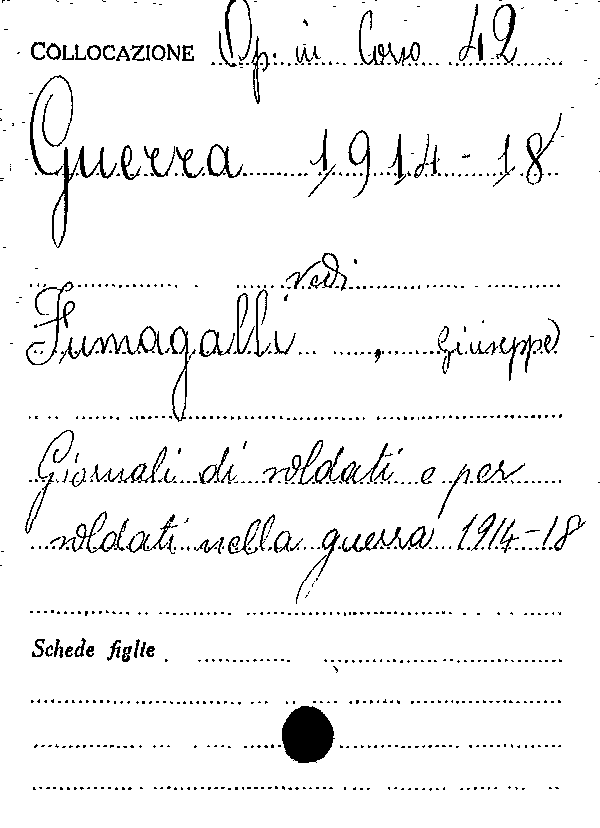 COLLOCAZIONE Op. in Corso 42
Guerra 1914-18
vedi
Fumagalli , Giuseppe
Giornali di soldati e per
soldati nella guerra 1914-18
Schede figlie